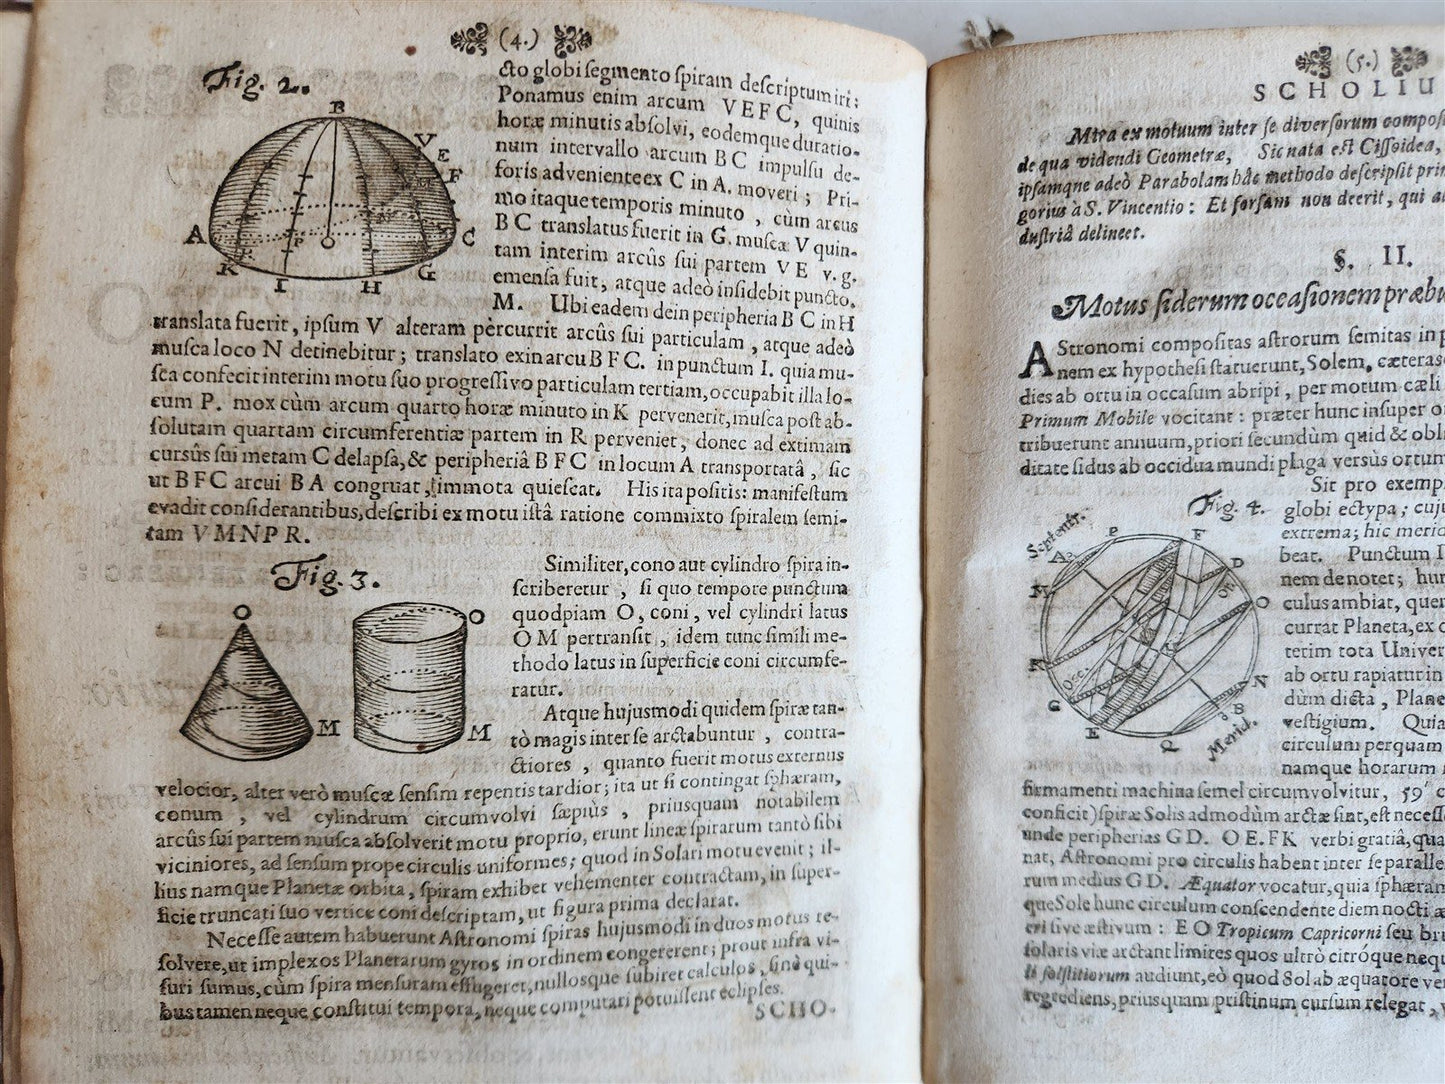 (4.)
Fig. 2.
B
V
E
F
A
C
O
P
K
I
H
G
cto globi segmento spiram descriptum iri:
Ponamus enim arcum VEFC, quinis
horæ minutis absolvi, eodemque duratio-
num intervallo arcum BC impulsu de-
foris adveniente ex C in A. moveri; Pri-
mo itaque temporis minuto, cùm arcus
BC translatus fuerit in G. musca V quin-
tam interim arcûs sui partem VE v. g.
emensa fuit, atque adeò insidebit puncto.
M. Ubi eadem dein peripheria BC in H
translata fuerit, ipsum V alteram pèrcurrit arcûs sui particulam, atque adeò
musca loco N detinebitur; translato exin arcu BFC. in punctum I. quia mu-
sca confecit interim motu suo progressivo particulam tertiam, occupabit illa lo-
cum P. mox cùm arcum quarto horæ minuto in K pervenerit, musca post ab-
solutam quartam circumferentiæ partem in R perveniet, donec ad extimam
cursûs sui metam C delapsa, & peripheriâ BFC in locum A transportatâ, sic
ut BFC arcui BA congruat, immota quiescat. His ita positis: manifestum
evadit considerantibus, describi ex motu istâ ratione commixto spiralem semi-
tam VMNPR.
Fig. 3.
O
O
M
M
Similiter, cono aut cylindro spira in-
scriberetur, si quo tempore punctum
quodpiam O, coni, vel cylindri latus
OM pertransit, idem tunc simili me-
thodo latus in superficie coni circumfe-
ratur.
Atque hujusmodi quidem spiræ tan-
tò magis inter se arctabuntur, contra-
ctiores, quanto fuerit motus externus
velocior, alter verò muscæ sensim repentis tardior; ita ut si contingat sphæram,
conum, vel cylindrum circumvolvi sæpiùs, priusquam notabilem
arcûs sui partem musca absolverit motu proprio, erunt lineæ spirarum tantò sibi
viciniores, ad sensum prope circulis uniformes; quod in Solari motu evenit; il-
lius namque Planetæ orbita, spiram exhibet vehementer contractam, in super-
ficie truncati suo vertice coni descriptam, ut figura prima declarat.
Necesse autem habuerunt Astronomi spiras hujusmodi in duos motus re-
solvere, ut implexos Planetarum gyros in ordinem congererent; prout infra vi-
suri sumus, cùm spira mensuram effugeret, nullosque subiret calculos, sine qui-
bus tamen neque constitui tempora, neque computari potuissent eclipses.
SCHO-
(5.)
SCHOLIU
Mira ex motuum inter se diversorum composi
de qua videndi Geometræ, Sic nata est Cissoidea,
ipsamque adeò Parabolam hâc methodo descripsit prim
gorius à S. Vincentio: Et forsam non deerit, qui a
dustriâ delineet.
§. II.
Motus siderum occasionem præbu
AStronomi compositas astrorum semitas in p
nem ex hypothesi statuerunt, Solem, cæteras
dies ab ortu in occasum abripi, per motum cæli
Primum Mobile vocitant: præter hunc insuper o
tribuerunt annuum, priori secundùm quid & obli
ditate sidus ab occidua mundi plaga versùs ortum
Fig. 4.
Septentr.
A
P
F
D
M
O
N
B
G
E
Q
Occ.
Ori
Merid.
Sit pro exemp
globi ectypa; cuju
extrema; hic merid
beat. Punctum I
nem denotet; hun
culus ambiat, quem
currat Planeta, ex
terim tota Univer
ab ortu rapiatur in
dùm dicta, Plane
vestigium. Quia
circulum perquam
namque horarum
firmamenti machina semel circumvolvitur, 59' c
conficit) spiræ Solis admodùm arctæ sint, est necesse
unde peripherias GD. OE. FK verbi gratiâ, qua
nat, Astronomi pro circulis habent inter se paralle
rum medius GD. Æquator vocatur, quia sphæram
que Sole hunc circulum conscendente diem nocti æ
eri sive æstivum: EO Tropicum Capricorni seu bru
solaris viæ arctant limites quos ultrò citróque nequ
li solstitiorum audiunt, eò quod Sol ab æquatore ver
regrediens, priusquam pristinum cursum relegat,